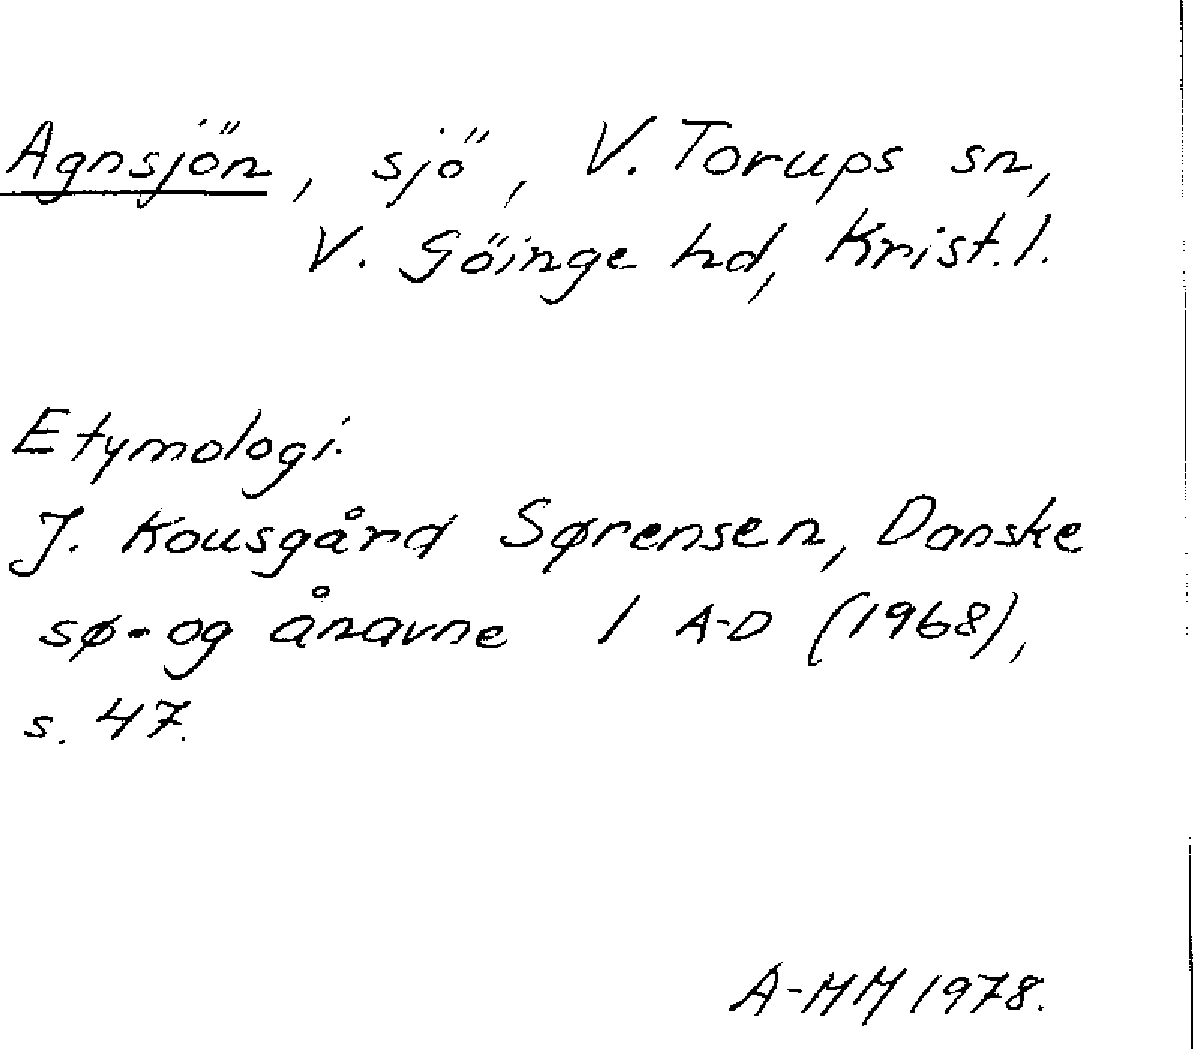 Agnsjön, sjö, V. Torups sn,
V. Göinge hd, Krist. l.
Etymologi.
J. Kousgård Sørensen, Danske
sø- og ånavne 1 A-D (1968),
s. 47.
A-MM 1978.